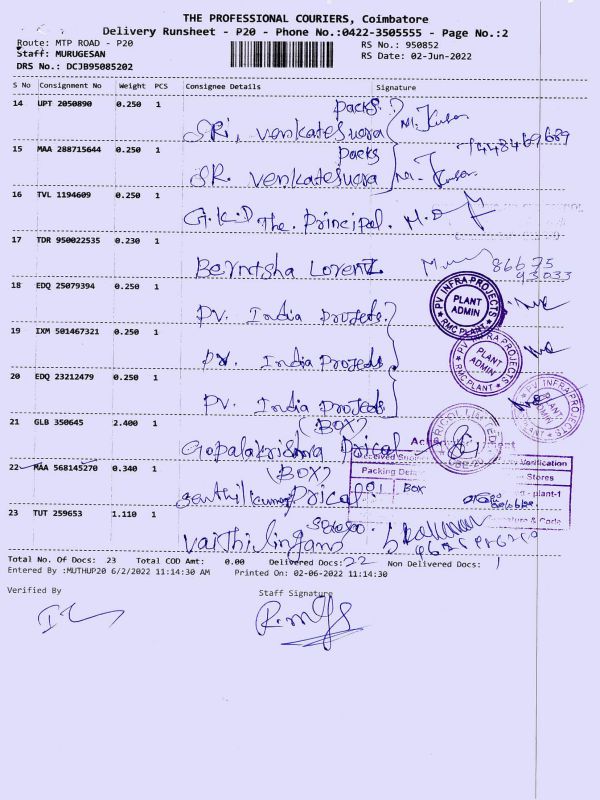 THE PROFESSIONAL COURIERS, Coimbatore
Delivery Runsheet - P20 - Phone No.:0422-3505555 - Page No.:2
Route: MTP ROAD - P20
RS No.: 950852
Staff: MURUGESAN
RS Date: 02-Jun-2022
DRS No.: DCJB95085202
S No Consignment No Weight PCS Consignee Details Signature
14 UPT 2050890 0.250 1
Packs.
SRi, Venkateswara
15 MAA 288715644 0.250 1
Packs
SR. Venkatesuora
16 TVL 1194609 0.250 1
G.K.D The. Principal.
17 TDR 950022535 0.230 1
Bernisha Lorentz
86675
93033
18 EDQ 25079394 0.250 1
PV. India Projects.
19 IXM 501467321 0.250 1
PV. India Projects.
20 EDQ 23212479 0.250 1
PV. India Projects
PV INFRA PROJECTS
PLANT ADMIN
RMC PLANT
PV INFRA PROJECTS
PLANT ADMIN
RMC PLANT
PV INFRA PROJECTS
PLANT ADMIN
21 GLB 350645 2.400 1
(BOX)
Gopalakrishna Prical
22 MAA 568145270 0.340 1
(BOX)
Senthilkumar Prical
Verification
Stores
Packing
01 BOX
plant-1
Signature & Code
23 TUT 259653 1.110 1
Vaithilingam
Total No. Of Docs: 23 Total COD Amt: 0.00 Delivered Docs: 22 Non Delivered Docs: 1
Entered By :MUTHUP20 6/2/2022 11:14:30 AM Printed On: 02-06-2022 11:14:30
Verified By
Staff Signature